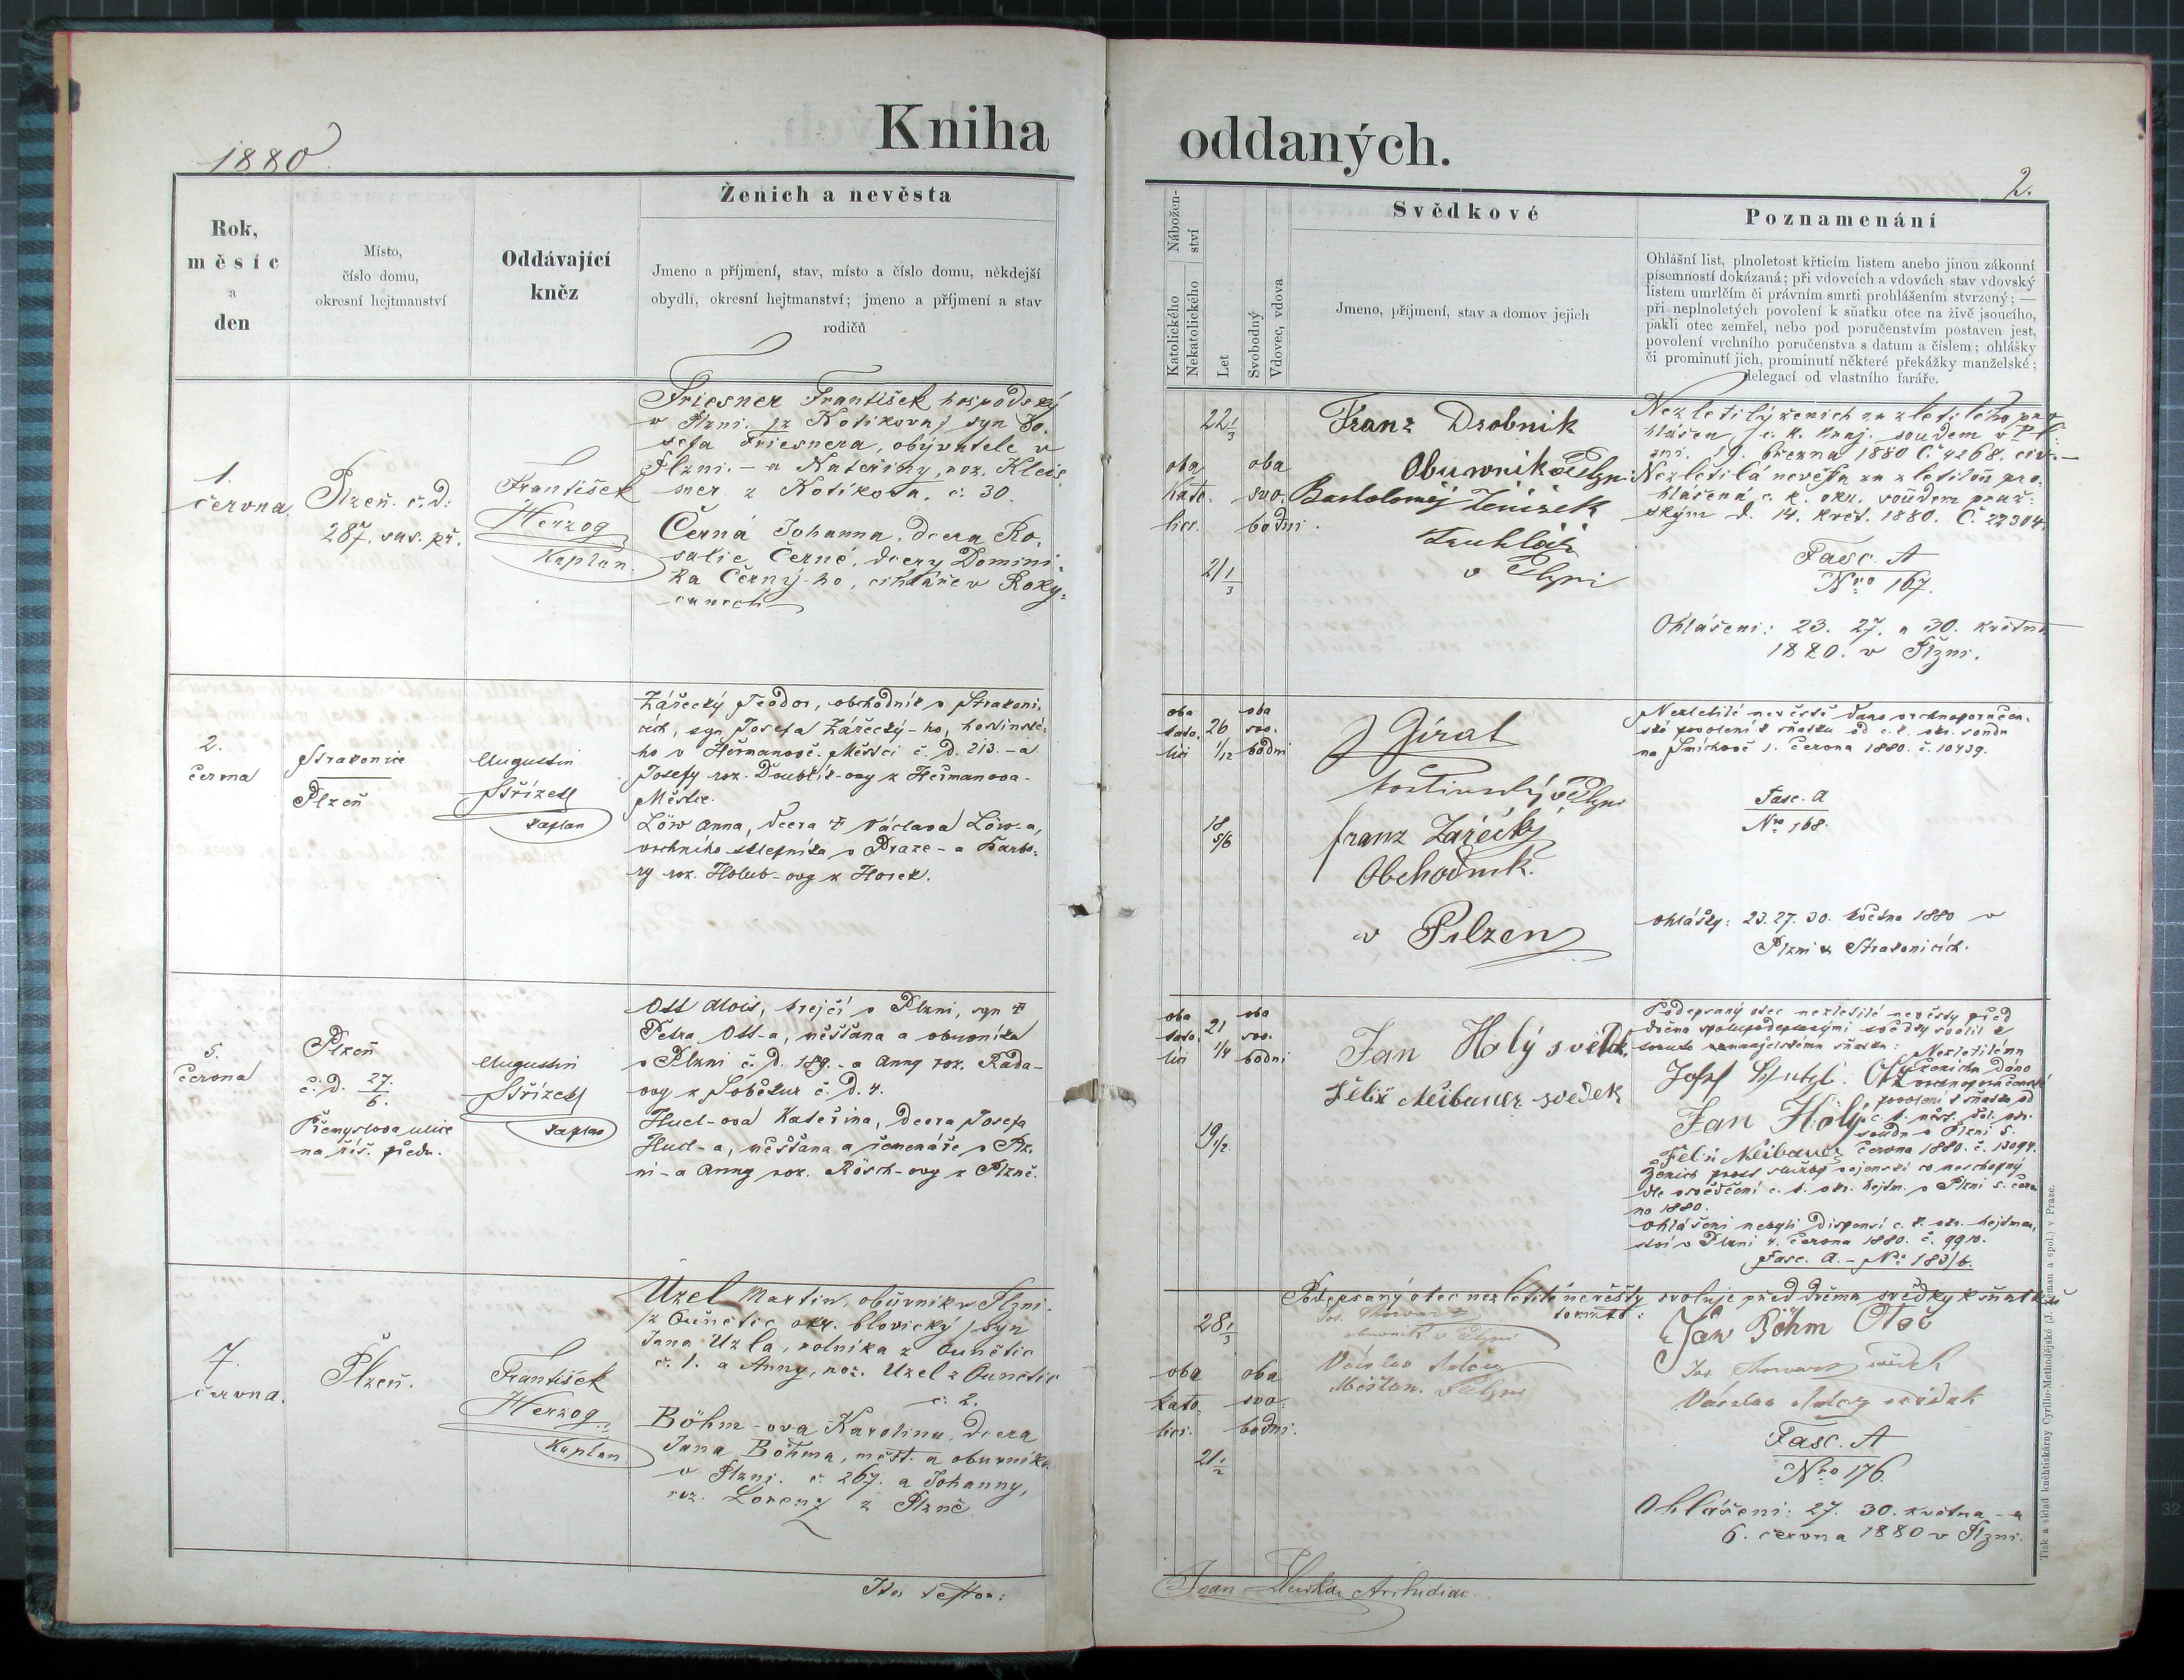 Kniha oddaných.
1880
2.
Rok,
měsíc
a
den
Místo,
číslo domu,
okresní hejtmanství
Oddávající
kněz
Ženich a nevěsta
Jmeno a příjmení, stav, místo a číslo domu, někdejší
obydlí, okresní hejtmanství; jmeno a příjmení a stav
rodičů
Nábožen-
ství
Katolického
Nekatolického
Let
Svobodný
Vdovec, vdova
Svědkové
Jmeno, příjmení, stav a domov jejich
Poznamenání
Ohlášní list, plnoletost křticím listem anebo jinou zákonní
písemností dokázaná; při vdovcích a vdovách stav vdovský
listem umrlčím či právním smrti prohlášením stvrzený; —
při neplnoletých povolení k sňatku otce na živě jsoucího,
pakli otec zemřel, nebo pod poručenstvím postaven jest,
povolení vrchního poručenstva s datum a číslem; ohlášky
či prominutí jich, prominutí některé překážky manželské;
delegací od vlastního faráře.
1.
června
Plzeň. č. d.
287. sas. př.
František
Herzog
Kaplan
Friesner František hospodský
v Plzni. /z Kotíkova/ syn Jo-
sefa Friesnera, obývatele v
Plzni. - a Kateřiny, roz. Kleis
sner z Kotíkova. č. 30.
Černá Johanna, dcera Ro-
salie Černé, dcery Domini-
ka Černý-ho, cihláře v Roky-
canech
22 1/3
oba
kato-
lici.
oba
svo-
bodni.
21 1/3
Franz Drobnik
Obuwnik v Plzni
Bartoloměj Ženíšek
Truhlář
v Plzni
Nezletilý ženich za zletilého pro-
hlášen c. k. kraj. soudem v Pl-
zni. 19. března 1880 Č. 4268. civ. -
Nezletilá nevěsta za zletilou pro-
hlášená c. k. okr. soudem praž-
ským d. 14. květ. 1880. Č. 22304.
Fasc. A
Nro 167.
Ohlášení: 23. 27. a 30. května
1880. v Plzni.
2.
června
Strakonice
Plzeň
Augustin
Střízek
kaplan
Zářecký Teodor, obchodník v Strakoni-
cích, syn Josefa Zářecký-ho, hostinské-
ho v Heřmanově-Městci č. d. 213. - a
Josefy roz. -ovy z Heřmanova-
Městce.
Löw Anna, dcera † Václava Löw-a,
vrchního sklepníka v Praze - a Barbo-
ry roz. Holub-ovy z Horek.
oba
kato-
lici
26
1/12
oba
svo-
bodni
18
5/6
J Giral
hostinský v Plzni
franz Zářecký
Obchodnik.
v Pilzen
Nezletilé nevěstě dáno vrchnoporučen-
ské povolení k sňatku od c. k. okr. soudu
na Smíchově 1. června 1880. č. 10439.
Fasc. A
Nro 168.
ohlášky: 23. 27. 30. května 1880 v
Plzni & Strakonicích.
5.
června
Plzeň
č. d. 27./6.
Přemyslova ulice
na říš. předm.
Augustin
Střízek
kaplan
Ott Alois, krejčí v Plzni, syn †
Petra Ott-a, měšťana a obuvníka
v Plzni č. d. 189. - a Anny roz. Rada-
ovy z Soběkur č. d. 4.
Hucl-ova Kateřina, dcera Josefa
Hucl-a, měšťana a řemenáře v Plz-
ni - a Anny roz. Rösch-ovy z Plzně.
oba
kato-
lici
21
1/4
oba
svo-
bodni
19 1/2
Jan Holý svědek
Felix Neibauer svědek
Podepsaný otec nezletilé nevěsty před
dvěma spolupodepsanými svědky svolil k
tomuto manželskému sňatku:
Nezletilému
ženichu dáno
vrchnoporučenské
povolení k sňatku od
Jan Holý
soudu v Plzni 5.
Felix Neibauer června 1880. č. 13094.
Ženich prost služby vojenské co neschopný
dle osvědčení c. k. okr. hejtm. v Plzni 5. červ-
na 1880.
Ohlášení nabyli dispensí c. k. okr. hejtman-
ství v Plzni 4. června 1880. č. 9910.
Fasc. A. - No 183/b.
7.
června.
Plzeň.
František
Herzog
Kaplan
Uzel Martin, obuvník v Plzni.
/z Ounětic okr. blovický/ syn
Jana Uzla, rolníka z Ounětic
č. 1. a Anny, roz. Uzel z Ounětic
č. 2.
Böhm-ova Karolina, dcera
Jana Böhma, měšť. a obuvníka
v Plzni. č. 267. a Johanny,
roz. Lorenz z Plzně
28 1/3
oba
kato-
lici.
oba
svo-
bodni.
21 1/2
Podepsaný otec nezletilé nevěsty svoluje před dvěma svědky k sňatku
tomuto:
obuvník v Plzni
Václav
Měšťan. v Plzni
Jan Böhm Otec
svědek
Václav svědek
Fasc. A
Nro 176.
Ohlášení: 27. 30. května - a
6. června 1880 v Plzni.
Ita testor:
Joan Archidiac.
Tisk a sklad knihtiskárny Cyrillo-Methodějské (J. Zeman a spol.) v Praze.